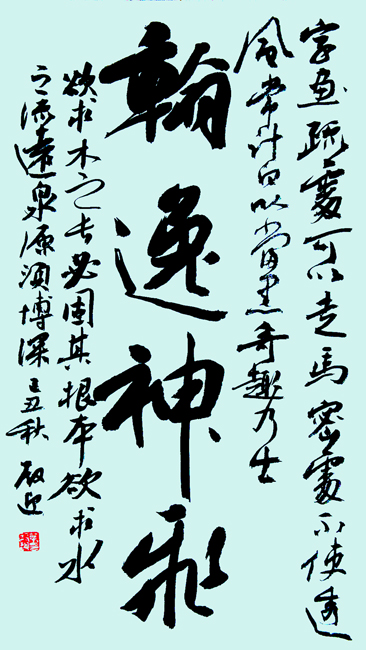 字畫疏處可以走馬密處不使透
風常計白以當黑奇趣乃出
翰逸神飛
欲求木之長必固其根本欲求水
之流遠泉源須博深己丑秋